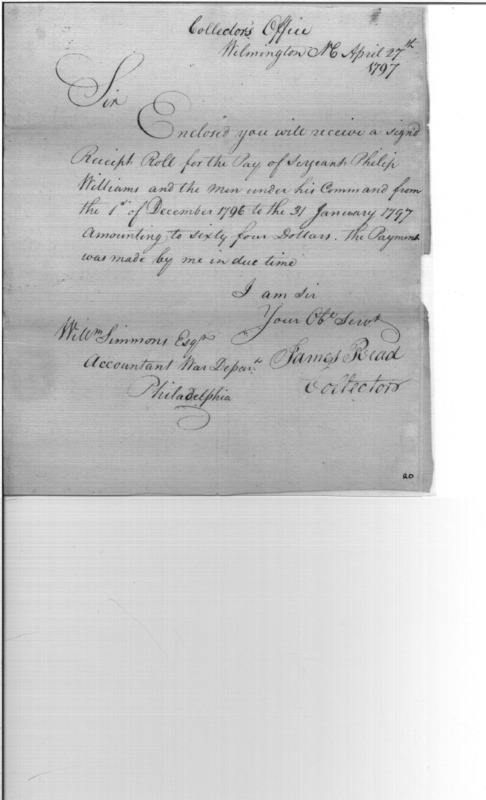 Collector's Office
Wilmington NC April 27th
1797
Sir
Enclosed you will receive a signd
Receipt Roll for the Pay of Serjeant Philip
Williams and the men under his Command from
the 1st of December 1796 to the 31 January 1797
amounting to sixty four Dollars. the Payment
was made by me in due time
I am sir
Your Obt Servt
Willm Simmons Esqr
Accountant War Depart
Philadelphia
James Read
Collector
20